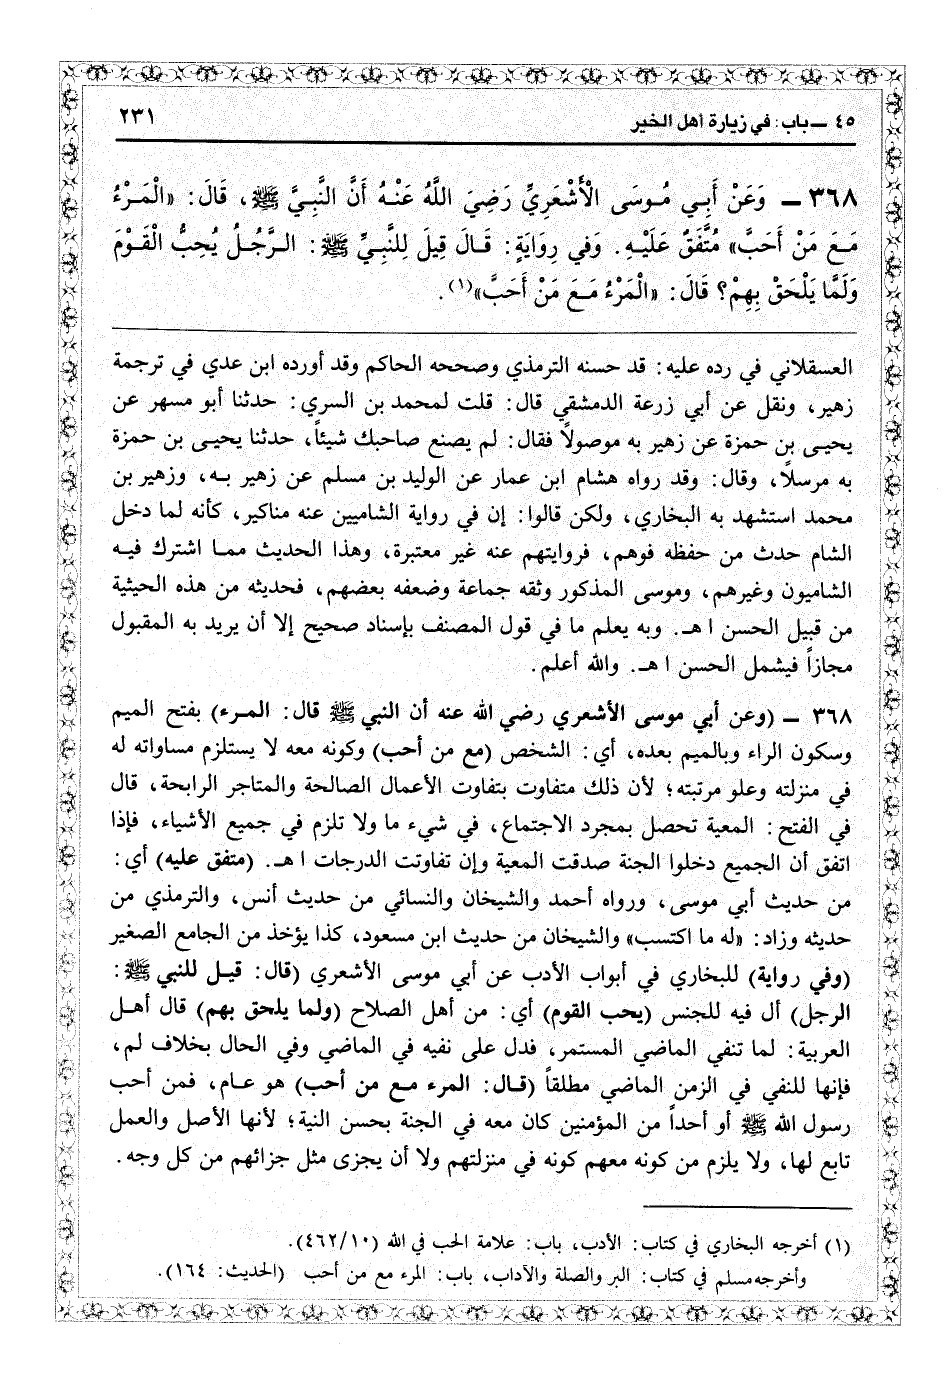 ٤٥ ـ باب: في زيارة أهل الخير ٢٣١
٣٦٨ ـ وَعَنْ أَبِي مُوسَى الْأَشْعَرِيِّ رَضِيَ اللَّهُ عَنْهُ أَنَّ النَّبِيَّ ﷺ، قَالَ: «الْمَرْءُ
مَعَ مَنْ أَحَبَّ» مُتَّفَقٌ عَلَيْهِ. وَفي رِوَايَةٍ: قَالَ قِيلَ لِلنَّبِيِّ ﷺ: الرَّجُلُ يُحِبُّ الْقَوْمَ
وَلَمَّا يَلْحَقْ بِهِمْ؟ قَالَ: «الْمَرْءُ مَعَ مَنْ أَحَبَّ»(١).
العسقلاني في رده عليه: قد حسنه الترمذي وصححه الحاكم وقد أورده ابن عدي في ترجمة
زهير، ونقل عن أبي زرعة الدمشقي قال: قلت لمحمد بن السري: حدثنا أبو مسهر عن
يحيى بن حمزة عن زهير به موصولاً فقال: لم يصنع صاحبك شيئاً، حدثنا يحيى بن حمزة
به مرسلاً، وقال: وقد رواه هشام ابن عمار عن الوليد بن مسلم عن زهير به، وزهير بن
محمد استشهد به البخاري، ولكن قالوا: إن في رواية الشاميين عنه مناكير، كأنه لما دخل
الشام حدث من حفظه فوهم، فروايتهم عنه غير معتبرة، وهذا الحديث مما اشترك فيه
الشاميون وغيرهم، وموسى المذكور وثقه جماعة وضعفه بعضهم، فحديثه من هذه الحيثية
من قبيل الحسن ا هـ. وبه يعلم ما في قول المصنف بإسناد صحيح إلا أن يريد به المقبول
مجازاً فيشمل الحسن ا هـ. والله أعلم.
٣٦٨ ـ (وعن أبي موسى الأشعري رضي الله عنه أن النبي ﷺ قال: المرء) بفتح الميم
وسكون الراء وبالميم بعده، أي: الشخص (مع من أحب) وكونه معه لا يستلزم مساواته له
في منزلته وعلو مرتبته؛ لأن ذلك متفاوت بتفاوت الأعمال الصالحة والمتاجر الرابحة، قال
في الفتح: المعية تحصل بمجرد الاجتماع، في شيء ما ولا تلزم في جميع الأشياء، فإذا
اتفق أن الجميع دخلوا الجنة صدقت المعية وإن تفاوتت الدرجات ا هـ. (متفق عليه) أي:
من حديث أبي موسى، ورواه أحمد والشيخان والنسائي من حديث أنس، والترمذي من
حديثه وزاد: «له ما اكتسب» والشيخان من حديث ابن مسعود، كذا يؤخذ من الجامع الصغير
(وفي رواية) للبخاري في أبواب الأدب عن أبي موسى الأشعري (قال: قيل للنبي ﷺ:
الرجل) أل فيه للجنس (يحب القوم) أي: من أهل الصلاح (ولما يلحق بهم) قال أهل
العربية: لما تنفي الماضي المستمر، فدل على نفيه في الماضي وفي الحال بخلاف لم،
فإنها للنفي في الزمن الماضي مطلقاً (قال: المرء مع من أحب) هو عام، فمن أحب
رسول الله ﷺ أو أحداً من المؤمنين كان معه في الجنة بحسن النية؛ لأنها الأصل والعمل
تابع لها، ولا يلزم من كونه معهم كونه في منزلتهم ولا أن يجزى مثل جزائهم من كل وجه.
(١) أخرجه البخاري في كتاب: الأدب، باب: علامة الحب في الله (٤٦٢/١٠).
وأخرجه مسلم في كتاب: البر والصلة والآداب، باب: المرء مع من أحب (الحديث: ١٦٤).